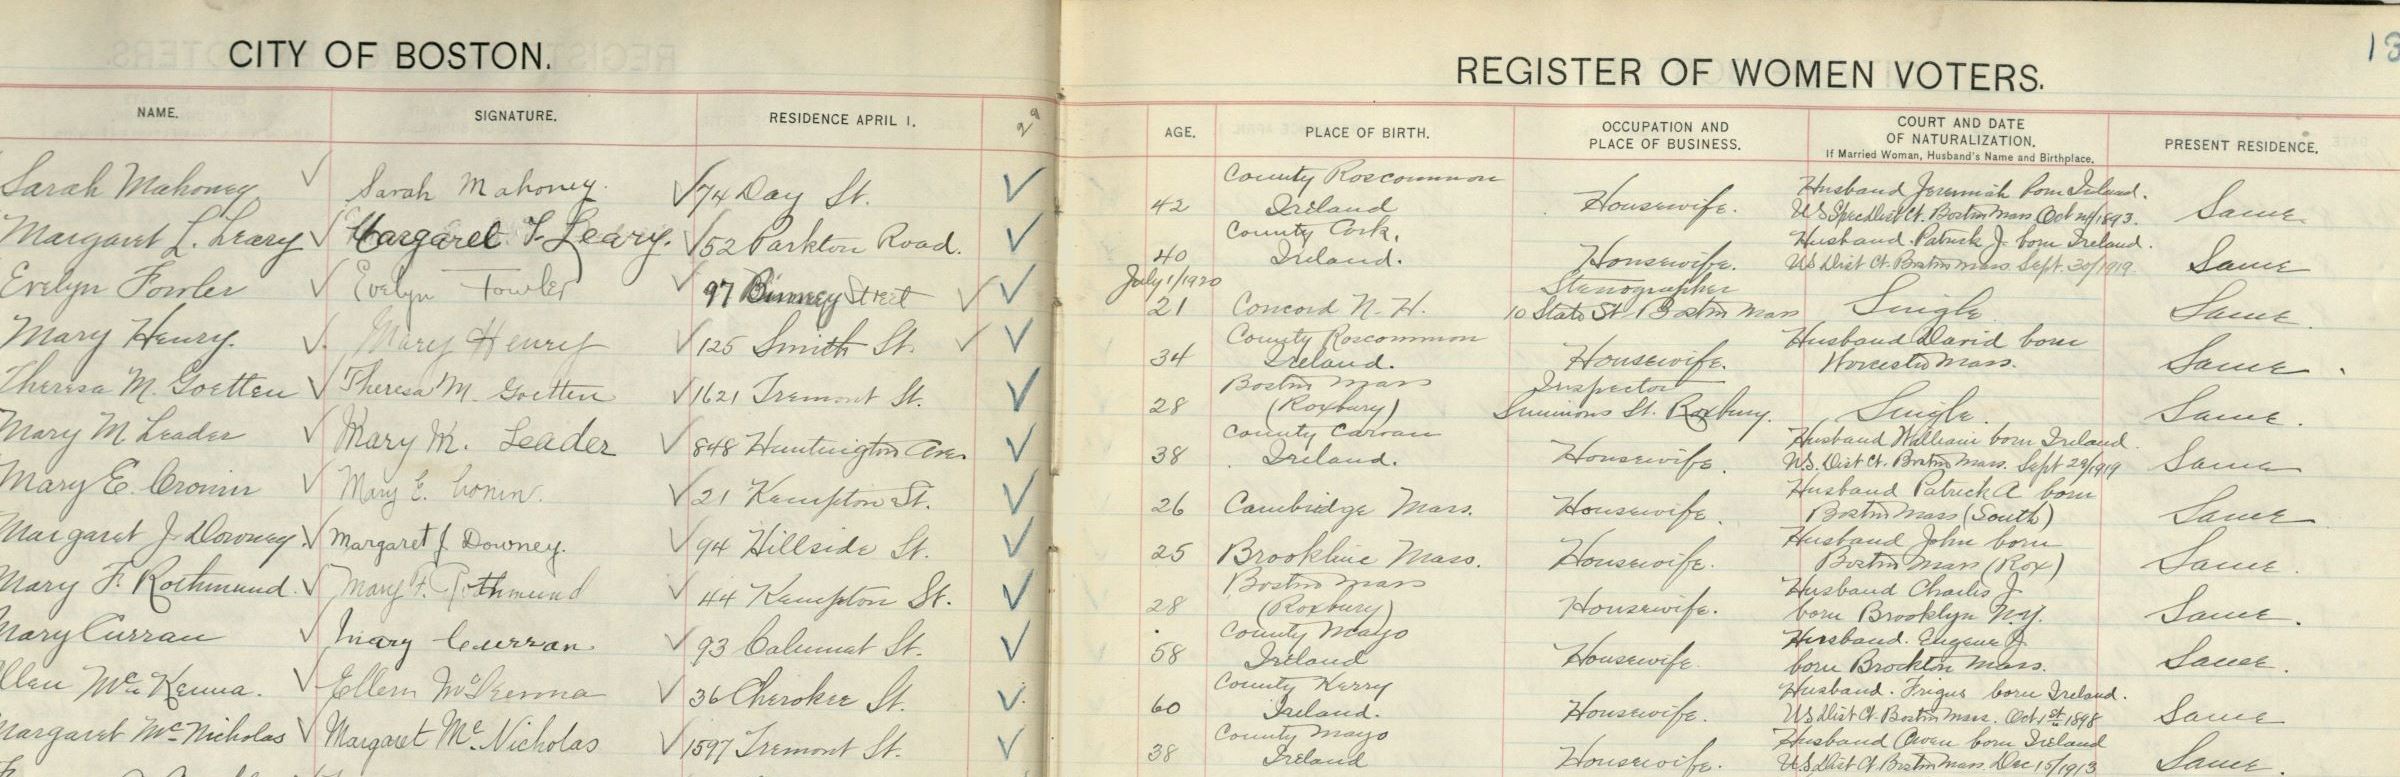 CITY OF BOSTON.
REGISTER OF WOMEN VOTERS.
13
NAME. SIGNATURE. RESIDENCE APRIL 1. 29 AGE. PLACE OF BIRTH. OCCUPATION AND PLACE OF BUSINESS. COURT AND DATE OF NATURALIZATION. If Married Woman, Husband's Name and Birthplace. PRESENT RESIDENCE.
Sarah Mahoney Sarah Mahoney. 74 Day St. 42 County Roscommon Ireland Housewife. Husband Jeremiah born Ireland. Boston Mass Oct 24/1893. Same
Margaret L. Leary Margaret F. Leary. 52 Parkton Road. 40 County Cork, Ireland. Housewife. Husband Patrick J. born Ireland. US Dist Ct. Boston Mass Sept. 30/1919 Same
Evelyn Fowler Evelyn Fowler 97 Binney Street July 1/1920 21 Concord N.H. Stenographer 10 State St Boston Mass Single Same.
Mary Henry. Mary Henry 125 Smith St. 34 County Roscommon Ireland. Housewife. Husband David born Worcester Mass. Same
Theresa M. Goetten Theresa M. Goetten 1621 Tremont St. 28 Boston Mass (Roxbury) Inspector St. Roxbury. Single Same.
Mary M Leader Mary M. Leader 848 Huntington Ave. 38 County Cavan Ireland. Housewife. Husband William born Ireland. US. Dist Ct. Boston Mass. Sept 29/1919 Same
Mary E. Cronin Mary E. Cronin. 21 Kempton St. 26 Cambridge Mass. Housewife. Husband Patrick A born Boston Mass (South) Same
Margaret J. Downey. Margaret J. Downey. 94 Hillside St. 25 Brookline Mass. Housewife. Husband John born Boston Mass (Rox) Same.
Mary F. Rothmund. Mary F. Rothmund 44 Kempton St. 28 Boston Mass (Roxbury) Housewife. Husband Charles J. born Brooklyn N.Y. Same.
Mary Curran Mary Curran 93 Calumet St. 58 County Mayo Ireland Housewife. Husband. Eugene J. born Brockton Mass. Same.
Ellen McKenna. Ellen McKenna 36 Cherokee St. 60 County Kerry Ireland. Housewife. Husband. born Ireland. US Dist Ct. Boston Mass. Oct 1st 1898 Same
Margaret McNicholas Margaret McNicholas 1597 Tremont St. 38 County Mayo Ireland Housewife. Husband Owen born Ireland US Dist Ct. Boston Mass. Dec 15/1913 Same.